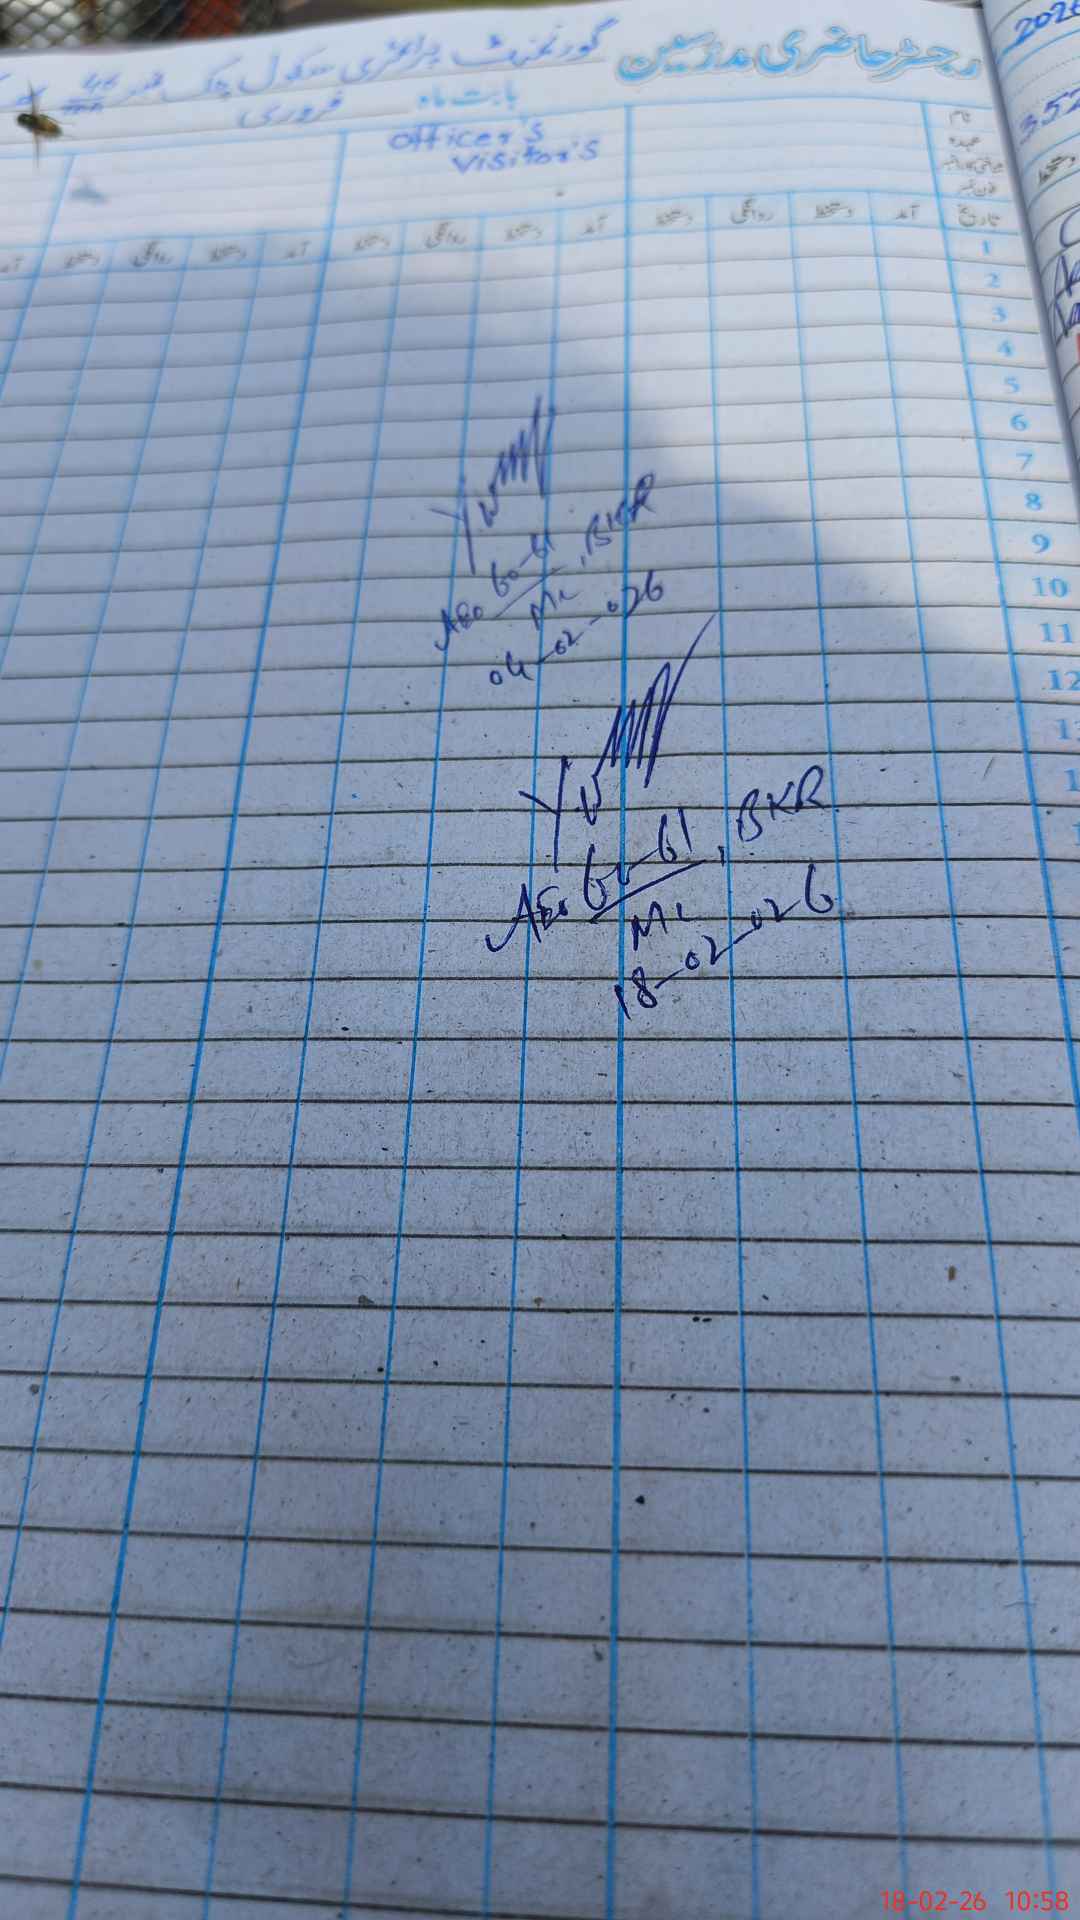 رجسٹر حاضری مدرسین گورنمنٹ پرائمری سکول چک نمبر 46
بابت ماہ فروری
2026
352
Officer's
Visitor's
نام
عہدہ
شناختی کارڈ نمبر
فون نمبر
تاریخ آمد دستخط روانگی دستخط آمد دستخط روانگی دستخط آمد دستخط روانگی دستخط آمد
1
2
3
4
5
6
7
8
9
10
11
12
AEO 60-61, BKR
ML
04-02-026
AEO 60-61, BKR
ML
18-02-026
18-02-26 10:58